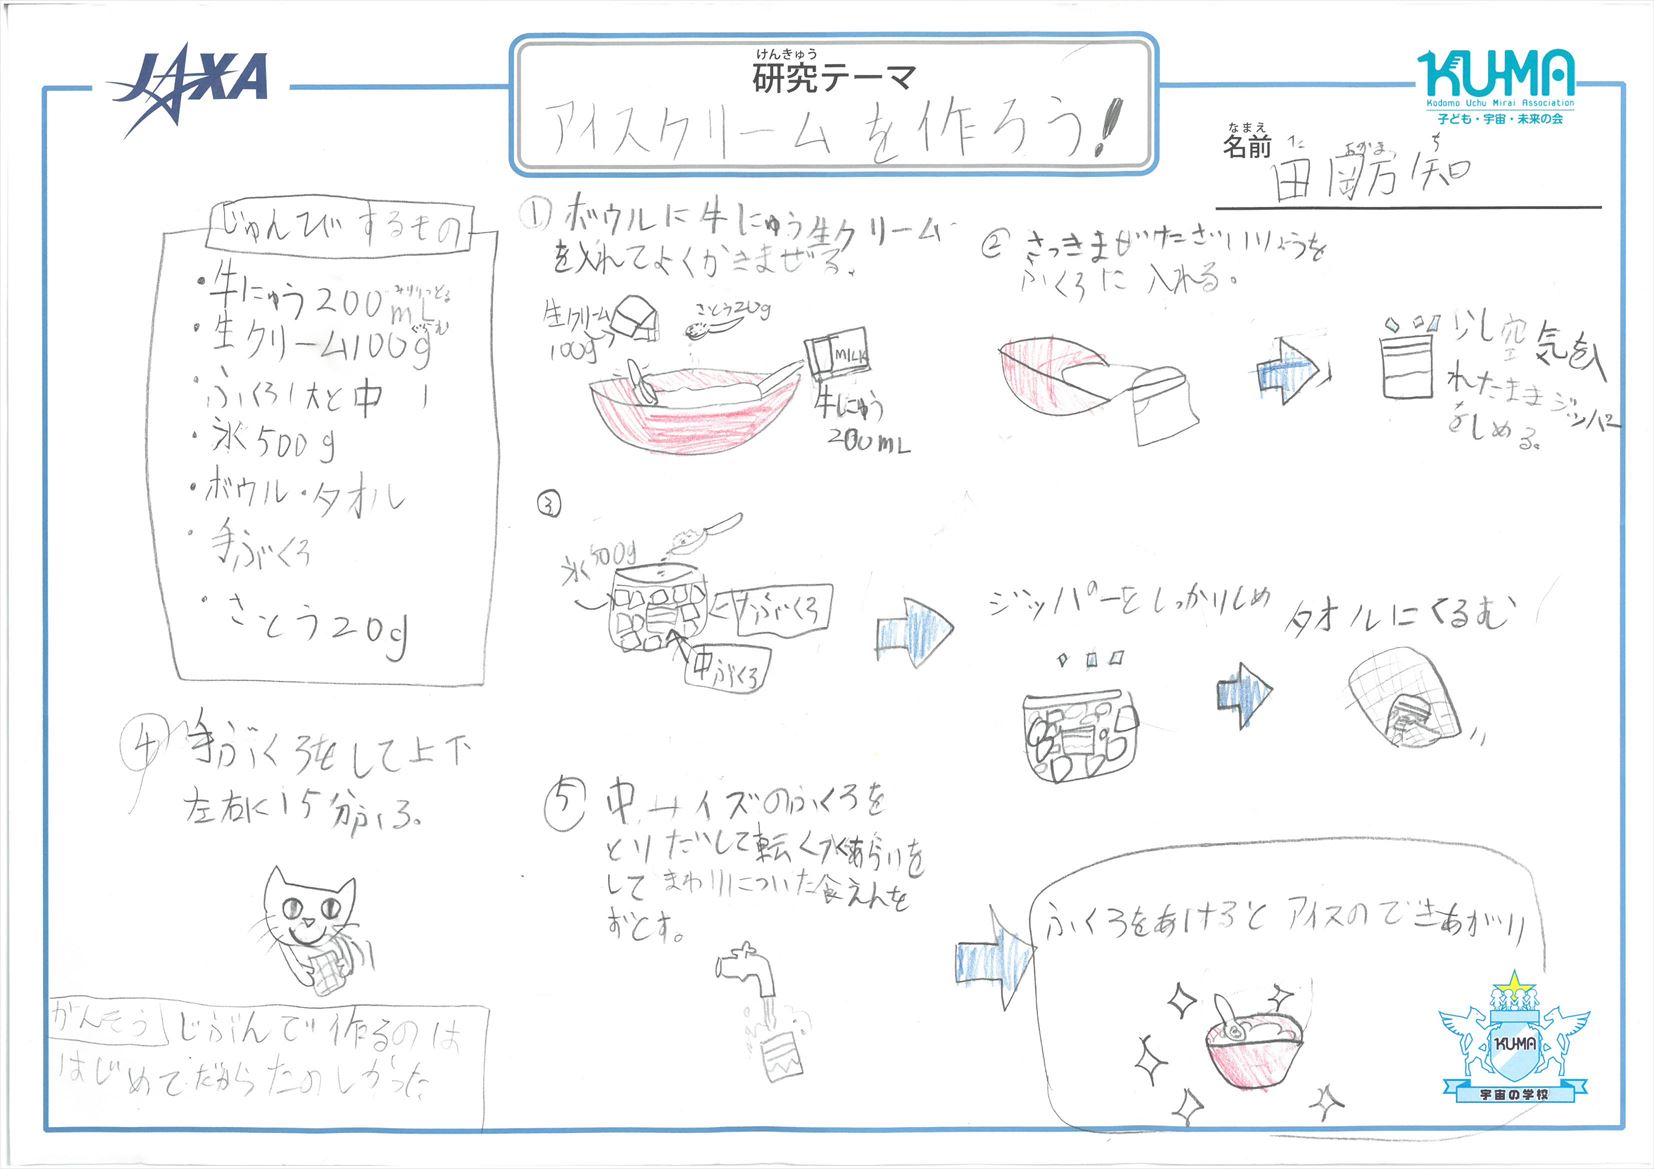 JAXA
けんきゅう
研究テーマ
アイスクリームを作ろう!
KU-MA
Kodomo Uchu Mirai Association
子ども・宇宙・未来の会
なまえ
名前
た おかま ち
田岡 知
じゅんびするもの
・牛にゅう200mL
みりりっとる
・生クリーム100g
ぐらむ
・ふくろ大と中1
・氷500g
・ボウル・タオル
・手ぶくろ
・さとう20g
①ボウルに牛にゅう生クリーム
を入れてよくかきまぜる。
生クリーム
100g
さとう20g
MILK
牛にゅう
200mL
②さっきまぜたざいりょうを
ふくろに入れる。
少し空気を入
れたままジッパー
をしめる。
③
氷500g
大ぶくろ
中ぶくろ
ジッパーをしっかりしめ
タオルにくるむ
④手ぶくろをして上下
左右に15分ふる。
⑤中サイズのふくろを
とりだして転く水あらいを
してまわりについた食えんを
おとす。
ふくろをあけるとアイスのできあがり
かんそう
じぶんで作るのは
はじめてだからたのしかった
KU-MA
宇宙の学校